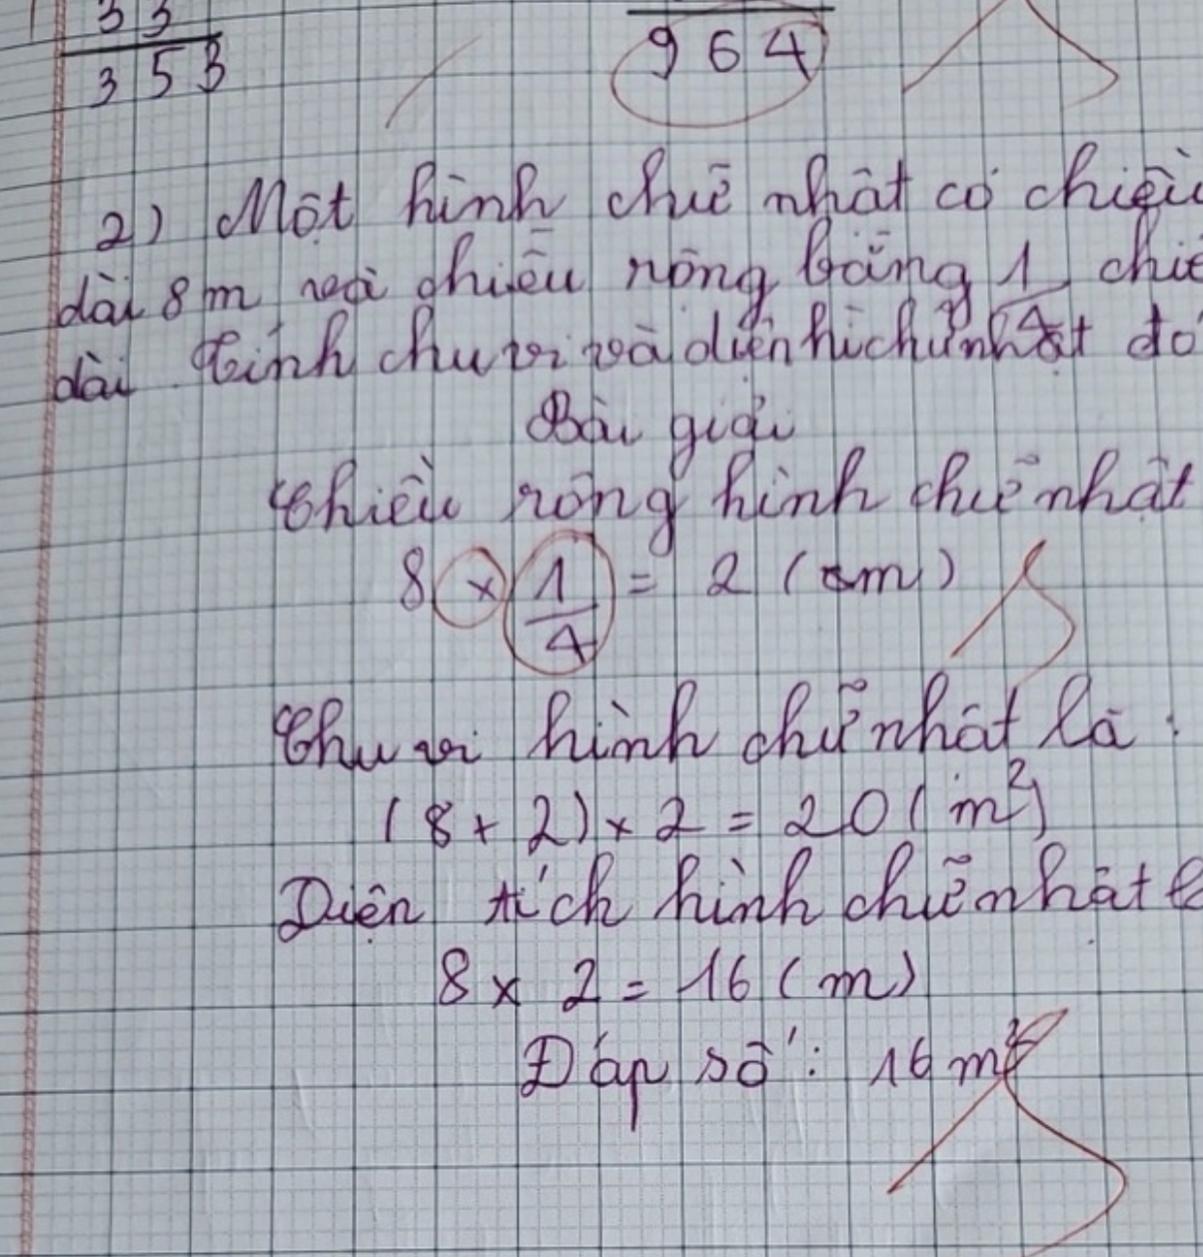 3 3
3 5 3
9 6 4
2) Một hình chữ nhật có chiều
dài 8 m và chiều rộng bằng 1/4 chiề
dài. Tính chu vi và diện hìchữnhật đó
Bài giải
Chiều rộng hình chữ nhật
8 × 1/4 = 2 (m)
Chu vi hình chữ nhật là :
(8 + 2) × 2 = 20 (m²)
Diện tích hình chữ nhật l
8 × 2 = 16 (m)
Đáp số : 16 m²